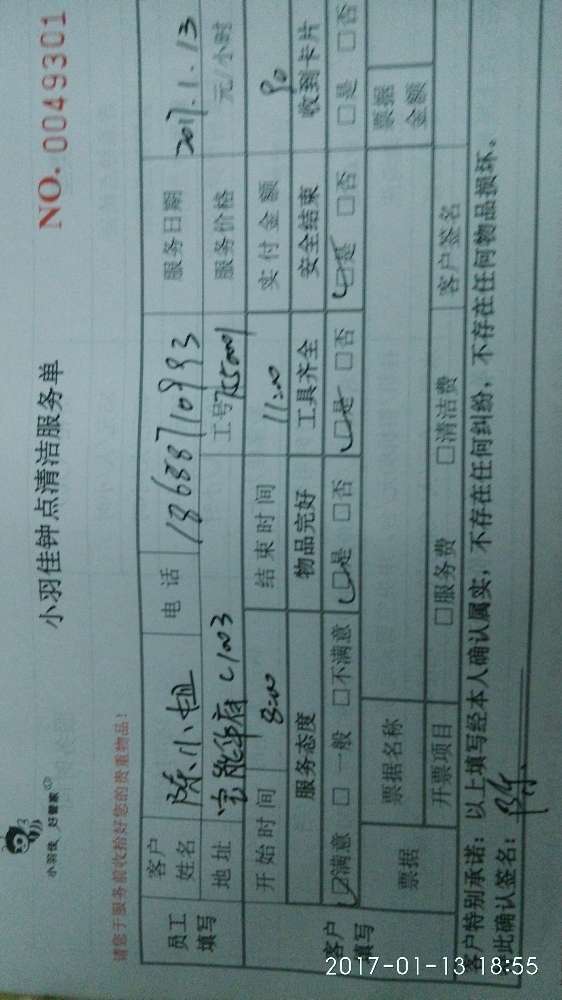 小羽佳 好管家
小羽佳钟点清洁服务单
NO. 0049301
请您于服务前收拾好您的贵重物品!
员工填写
客户姓名 陈小姐 电话 18688710993 服务日期 2017.1.13
地址 宝能华府C1003 工号 服务价格 元/小时
开始时间 8:00 结束时间 11:00 实付金额 90
客户填写
服务态度 物品完好 工具齐全 安全结束 收到卡片
☑满意 □一般 □不满意 ☑是 □否 ☑是 □否 ☑是 □否 □是 □否
票据 票据名称 票据金额
开票项目 □服务费 □清洁费 客户签名
客户特别承诺:以上填写经本人确认属实,不存在任何纠纷,不存在任何物品损坏。
此确认签名:陈
2017-01-13 18:55